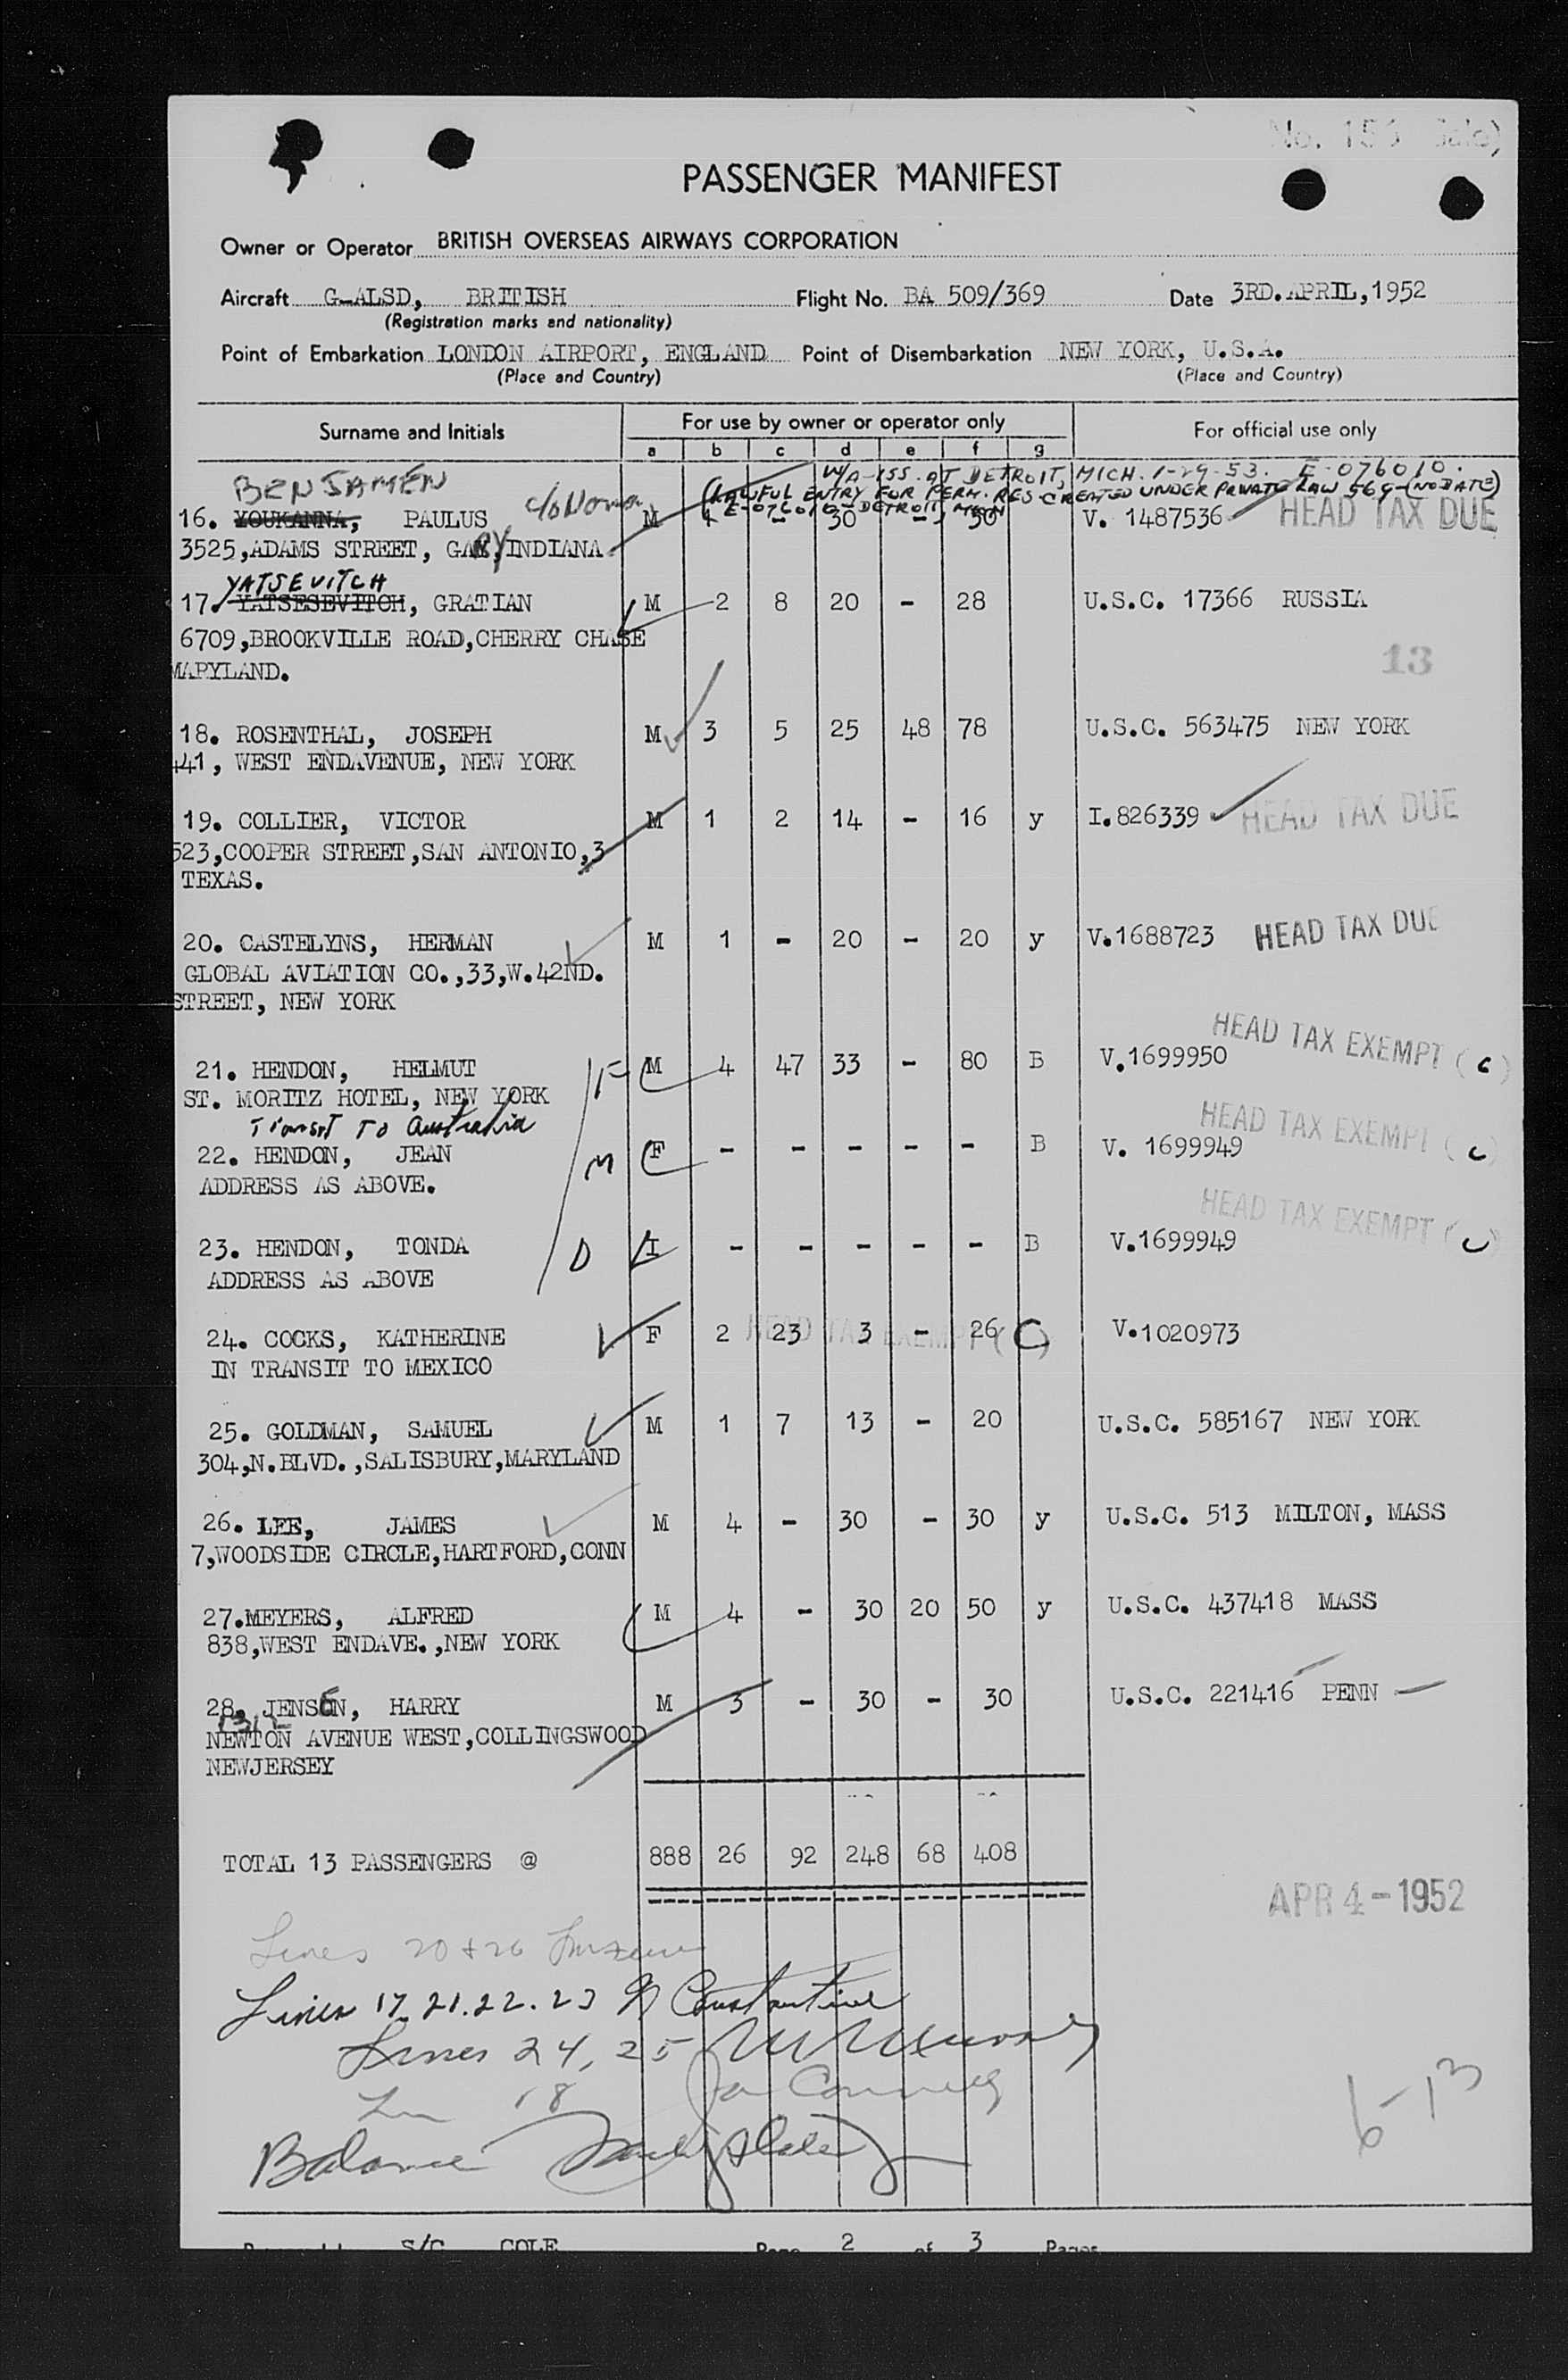 No. 15
PASSENGER MANIFEST
Owner or Operator BRITISH OVERSEAS AIRWAYS CORPORATION
Aircraft G-ALSD, BRITISH Flight No. BA 509/369 Date 3RD.APRIL,1952
(Registration marks and nationality)
Point of Embarkation LONDON AIRPORT, ENGLAND Point of Disembarkation NEW YORK, U.S.A.
(Place and Country) (Place and Country)
Surname and Initials For use by owner or operator only For official use only
a b c d e f g
W/A-ISS. AT DETROIT, MICH. 1-29-53. E-076010.
BENJAMEN (LAWFUL ENTRY FOR PERM. RES. CREATED UNDER PRIVATE LAW 569-(NO DATE)
E-076010-DETROIT, MICH
16. YOUKANNA, PAULUS c/o M - 30 - 30 V. 1487536 HEAD TAX DUE
3525,ADAMS STREET, GARY, INDIANA
YATSEVITCH
17. YATSESEVITCH, GRATIAN M 2 8 20 - 28 U.S.C. 17366 RUSSIA
6709,BROOKVILLE ROAD,CHERRY CHASE
MARYLAND.
13
18. ROSENTHAL, JOSEPH M 3 5 25 48 78 U.S.C. 563475 NEW YORK
441, WEST ENDAVENUE, NEW YORK
19. COLLIER, VICTOR M 1 2 14 - 16 y I.826339 HEAD TAX DUE
523,COOPER STREET,SAN ANTONIO,3
TEXAS.
20. CASTELYNS, HERMAN M 1 - 20 - 20 y V.1688723 HEAD TAX DUE
GLOBAL AVIATION CO.,33,W.42ND.
STREET, NEW YORK
HEAD TAX EXEMPT (C)
21. HENDON, HELMUT F M 4 47 33 - 80 B V.1699950
ST. MORITZ HOTEL, NEW YORK
Transit To Australia HEAD TAX EXEMPT (C)
22. HENDON, JEAN M F - - - - - B V. 1699949
ADDRESS AS ABOVE.
HEAD TAX EXEMPT (C)
23. HENDON, TONDA D I - - - - - B V.1699949
ADDRESS AS ABOVE
24. COCKS, KATHERINE F 2 23 3 - 26 HEAD TAX EXEMPT (C) V.1020973
IN TRANSIT TO MEXICO
25. GOLDMAN, SAMUEL M 1 7 13 - 20 U.S.C. 585167 NEW YORK
304,N.BLVD.,SALISBURY,MARYLAND
26. LEE, JAMES M 4 - 30 - 30 y U.S.C. 513 MILTON, MASS
7,WOODSIDE CIRCLE,HARTFORD,CONN
27.MEYERS, ALFRED M 4 - 30 20 50 y U.S.C. 437418 MASS
838,WEST ENDAVE.,NEW YORK
28. JENSEN, HARRY M 3 - 30 - 30 U.S.C. 221416 PENN
NEWTON AVENUE WEST,COLLINGSWOOD
NEWJERSEY
TOTAL 13 PASSENGERS @ 888 26 92 248 68 408
APR 4-1952
Lines 20 + 26
Lines 17 21.22.23 Constantine
Lines 24, 25
18
Balance
6-13
S/C COLE Page 2 of 3 Pages